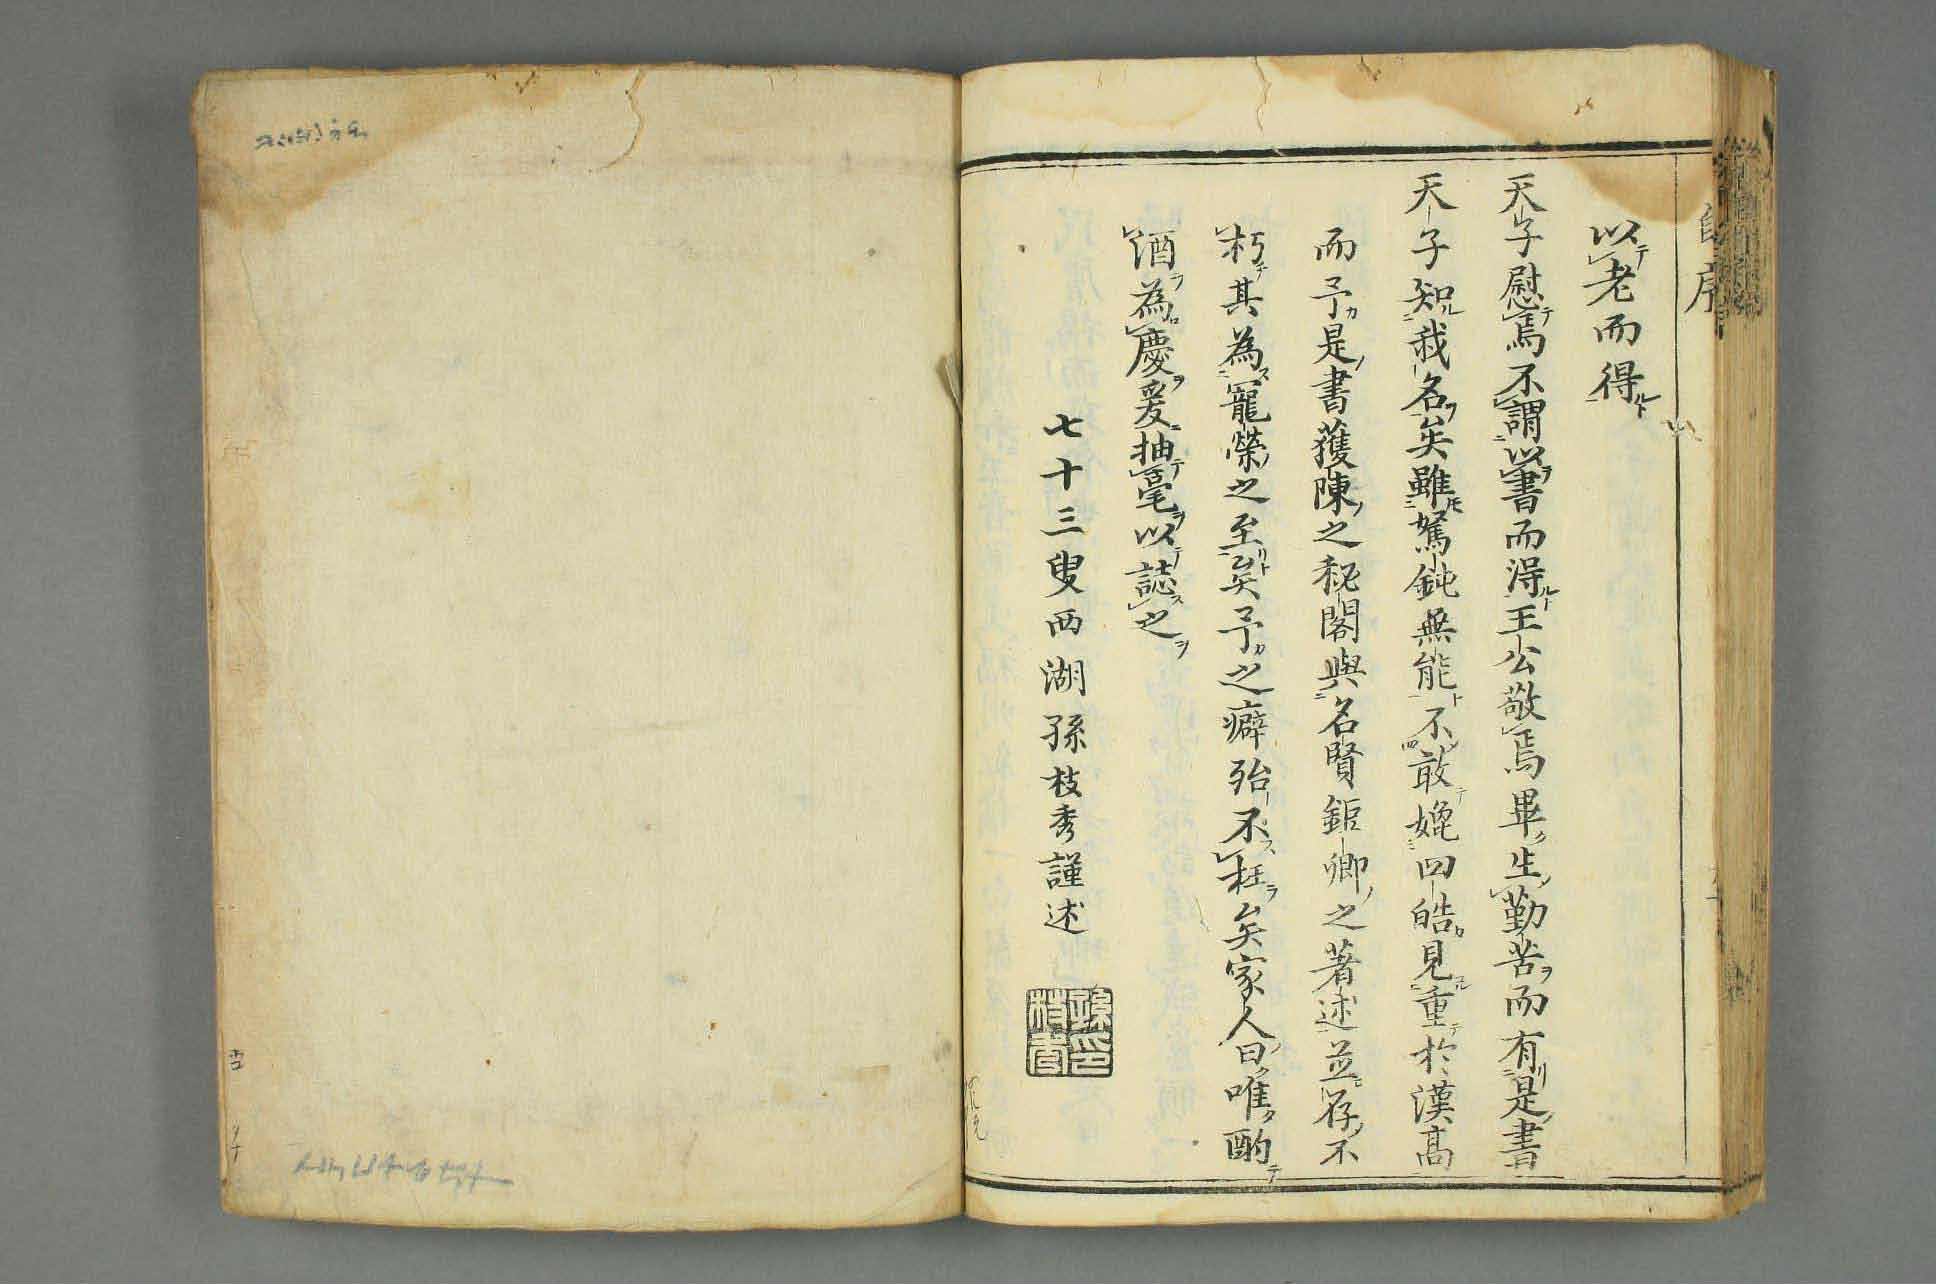 自序
以老而得
天子慰焉不謂以書而得王公敬焉畢生勤苦而有是書
天子知我名矣雖駑鈍無能不敢媲四皓見重於漢高
而予是書獲陳之秘閣與名賢鉅卿之著述並存不
朽其為寵榮之至矣予之癖殆不枉矣家人曰唯酌
酒為慶爰抽毫以誌之
七十三叟西湖孫枝秀謹述
孫枝秀印